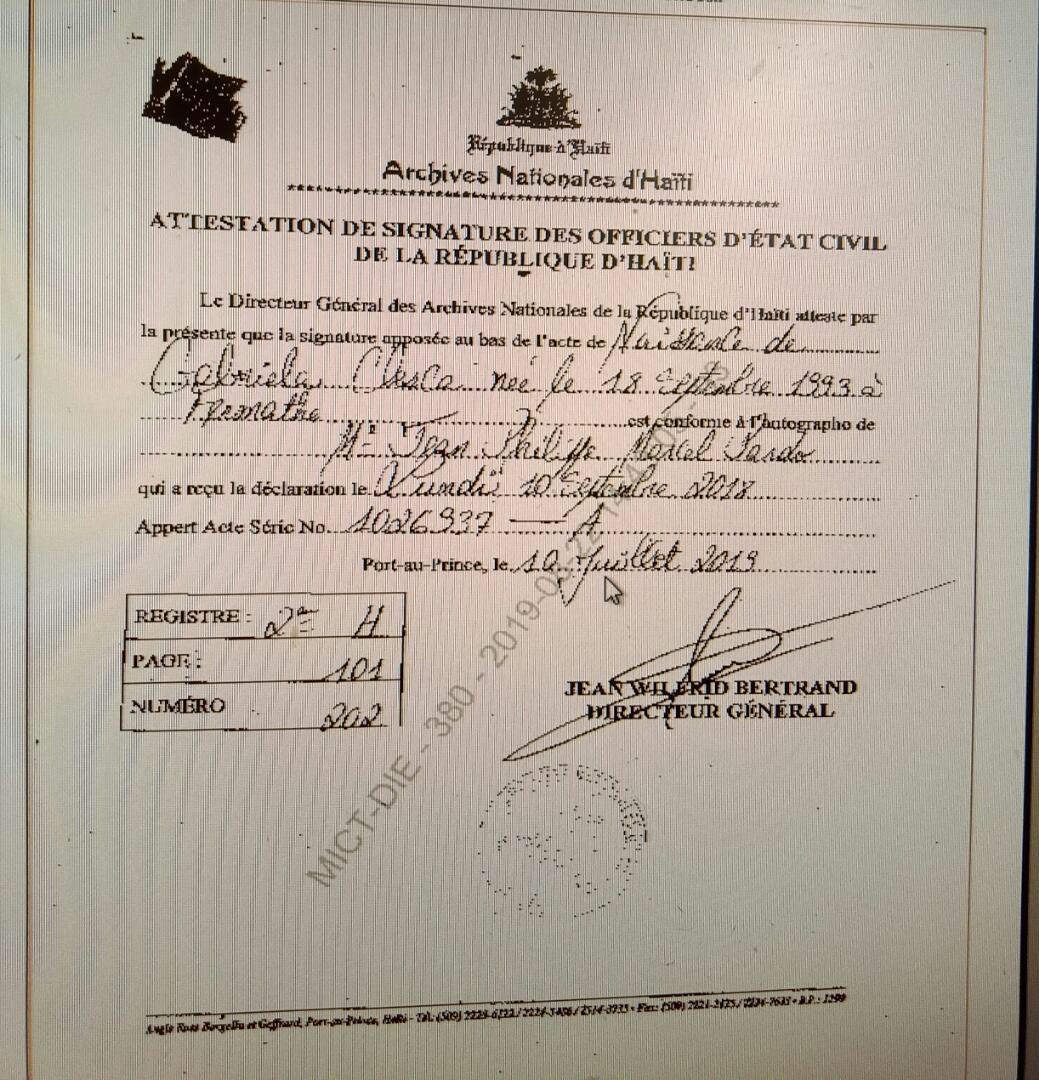 République d'Haïti
Archives Nationales d'Haïti
ATTESTATION DE SIGNATURE DES OFFICIERS D'ÉTAT CIVIL
DE LA RÉPUBLIQUE D'HAÏTI
Le Directeur Général des Archives Nationales de la République d'Haïti atteste par
la présente que la signature apposée au bas de l'acte de Naissance de
Gabriela Clesca née le 18 Septembre 1993 à
est conforme à l'autographe de
Me Jean Philippe Marcel
qui a reçu la déclaration le Lundi 10 Septembre 2018
Appert Acte Série No. 1026937 — A
Port-au-Prince, le 10 Juillet 2019
REGISTRE : 2e H
PAGE : 101
NUMÉRO 202
JEAN WILFRID BERTRAND
DIRECTEUR GÉNÉRAL
MICT-DIE - 380 - 2019-
Angle Rues Borgella et Geffrard, Port-au-Prince, Haïti - Tél: (509)